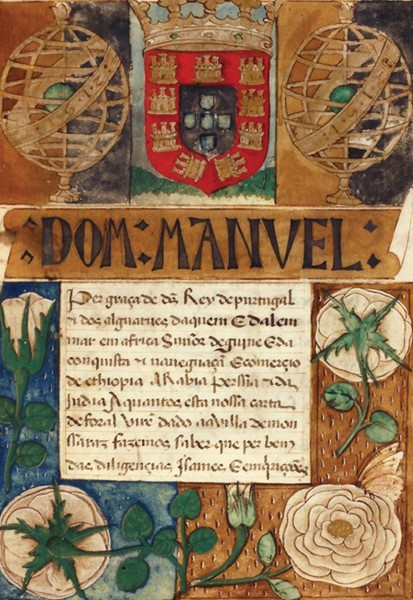 DOM : MANVEL
Per graça de ds Rey de purtugal
& dos alguarues daquem E dalem
mar em africa Senor de guine E da
conquista & naueguaçam E comerçio
de ethiopia Arabia perssia & da
India A quantos esta nossa carta
de foral virē dado aa villa de mon
ssaraz fazemos saber que per bem
das diligençias Isames E emquirições